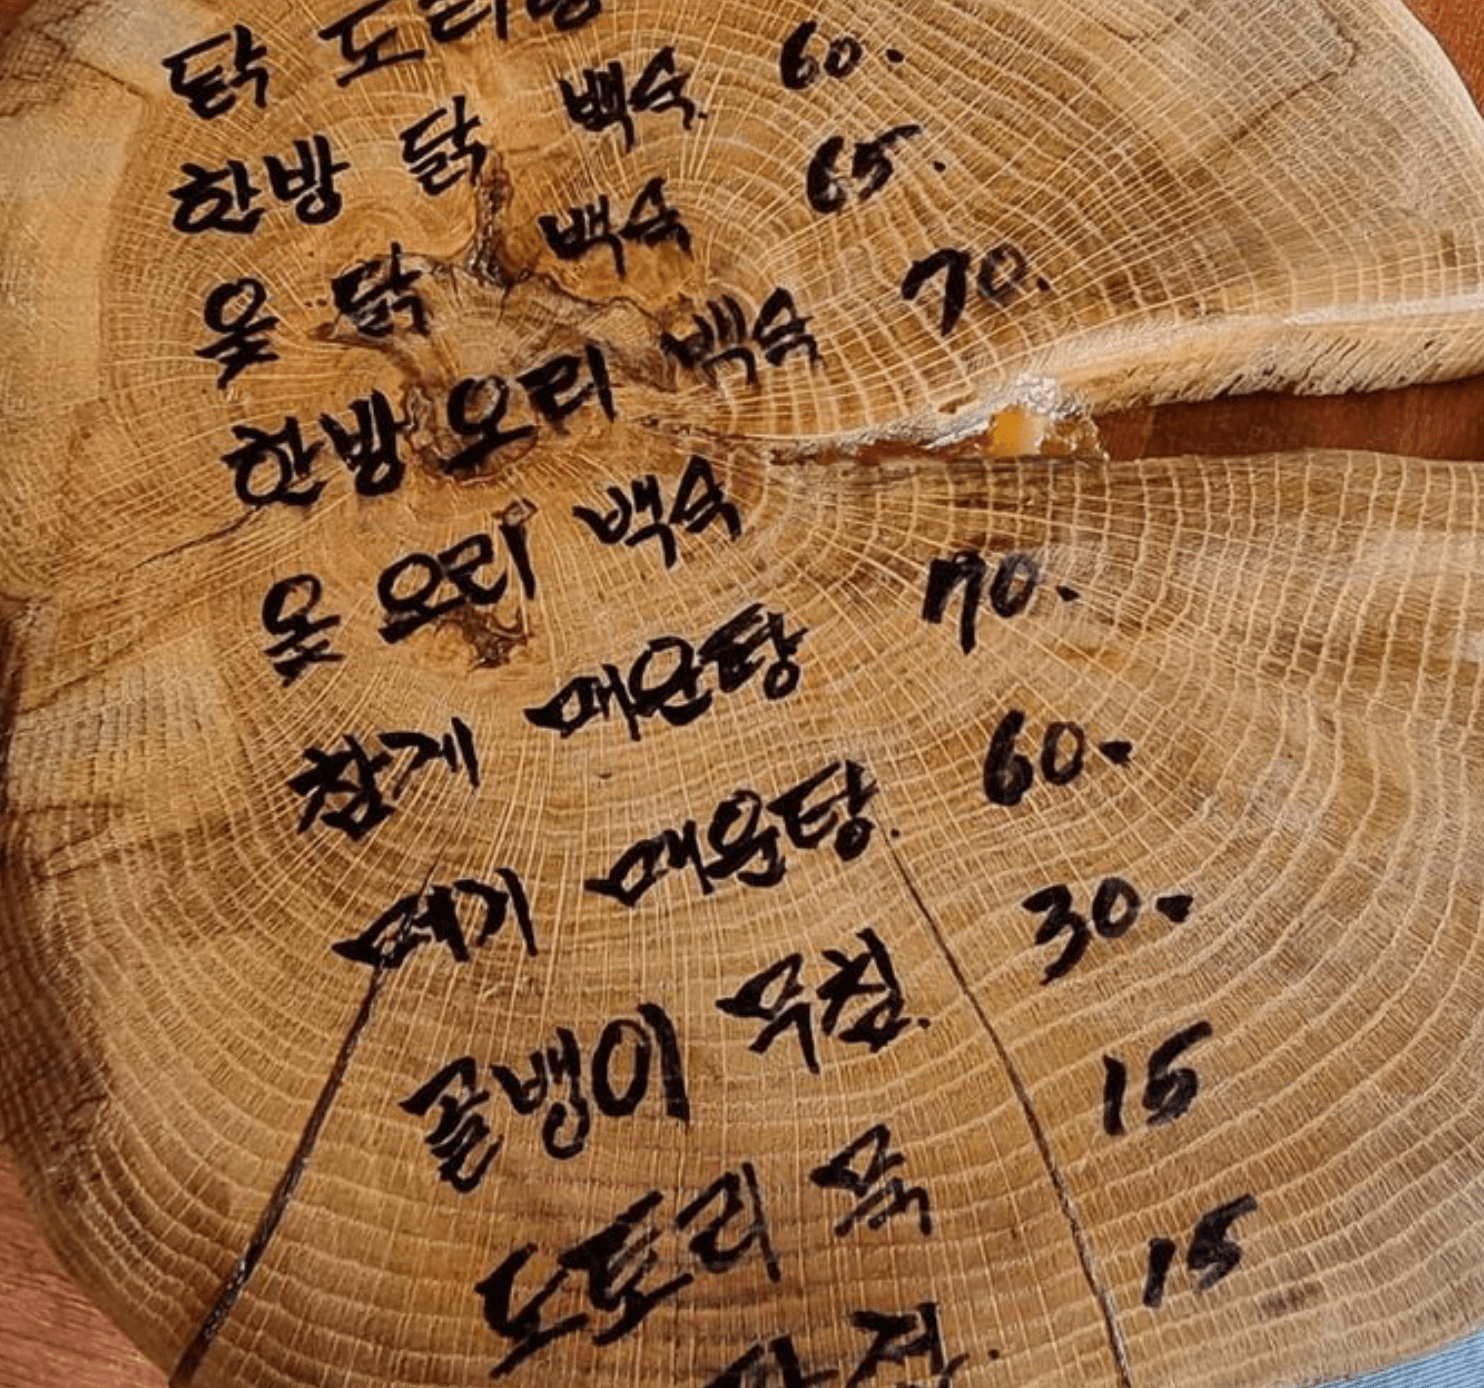 닭 도리탕
한방 닭 백숙 60.
옻 닭 백숙 65.
한방 오리 백숙 70.
옻 오리 백숙
참게 매운탕 70.
메기 매운탕. 60.
골뱅이 무침. 30.
도토리 묵 15
파전. 15